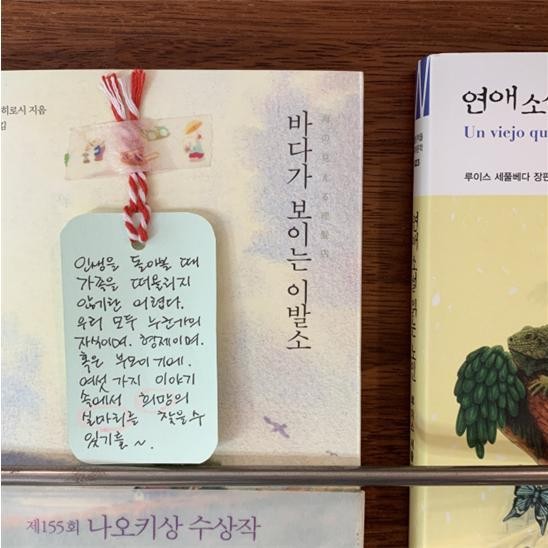 히로시 지음
김
바다가 보이는 이발소
海の見える理髪店
인생을 돌아볼 때
가족을 떠올리지
않기란 어렵다.
우리 모두 누군가의
자식이며. 형제이며.
혹은 부모이기에.
여섯 가지 이야기
속에서 희망의
실마리를 찾을 수
있기를 ~.
제155회 나오키상 수상작
연애 소
Un viejo qu
루이스 세풀베다 장편
연애 소설 읽는 노인